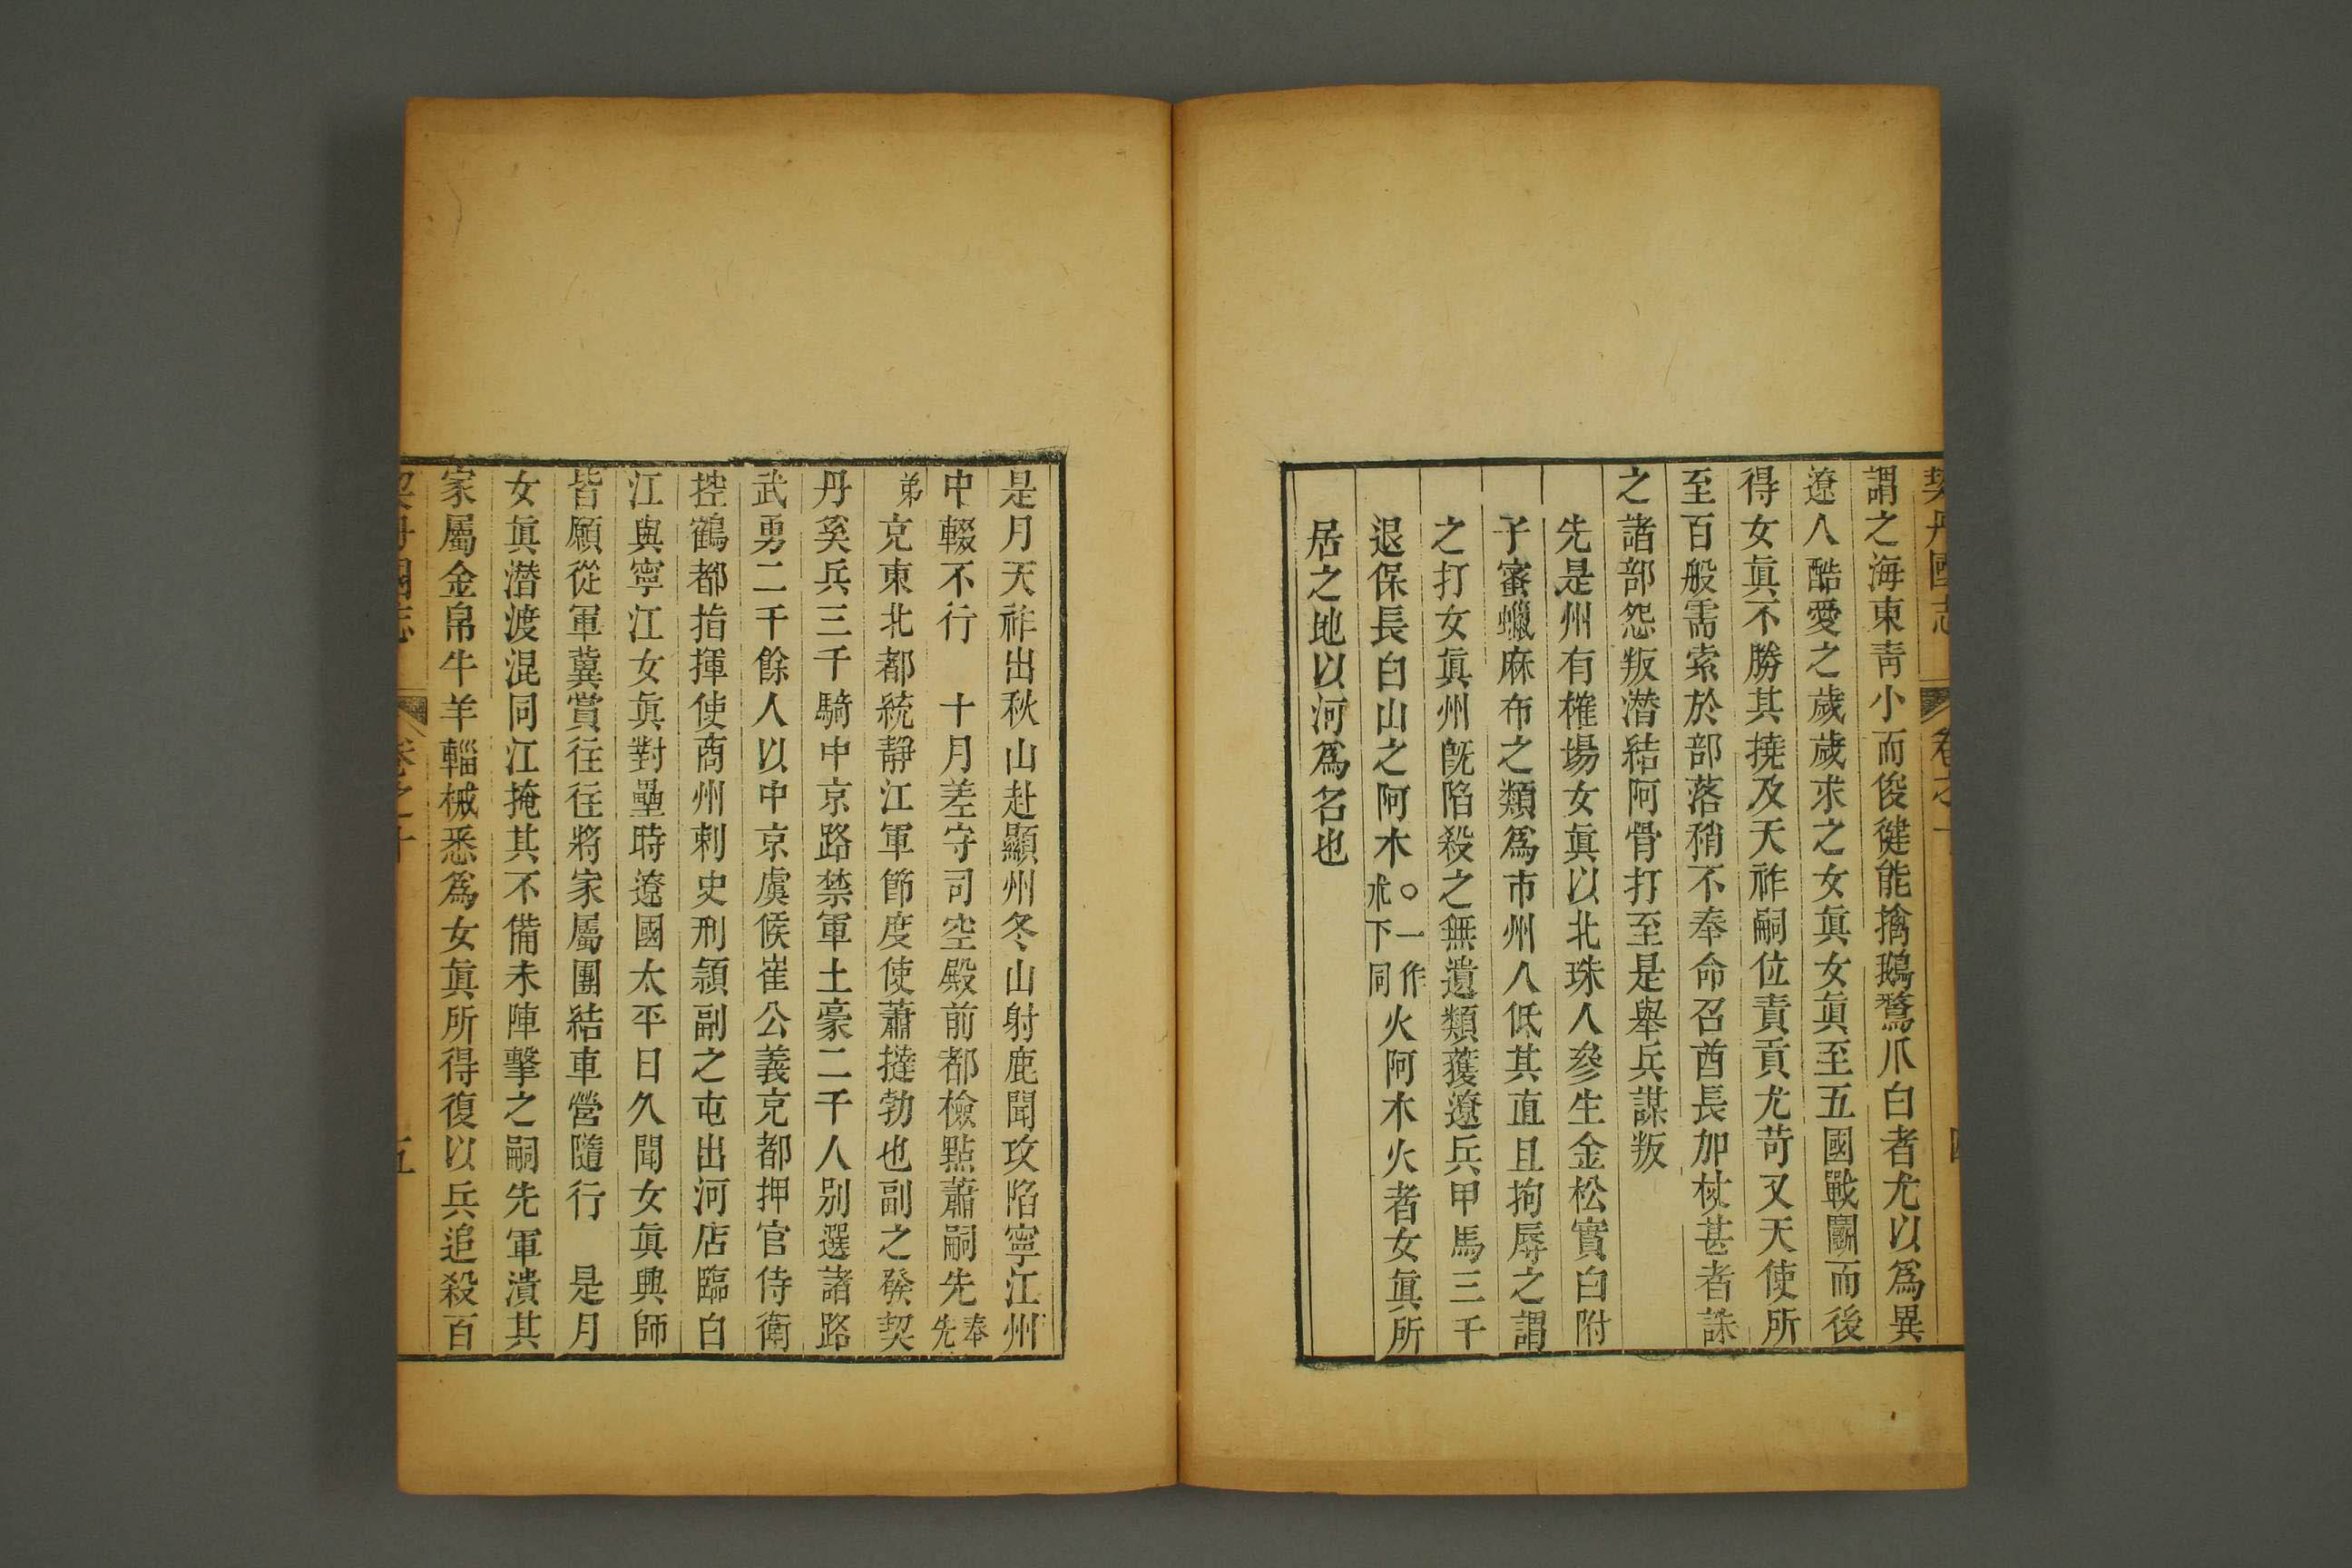 契丹國志 卷之十 四
謂之海東青小而俊健能擒鵝鶩爪白者尤以爲異
遼人酷愛之歲歲求之女眞女眞至五國戰鬭而後
得女眞不勝其撓及天祚嗣位責貢尤苛又天使所
至百般需索於部落稍不奉命召酋長加杖甚者誅
之諸部怨叛潛結阿骨打至是舉兵謀叛
先是州有榷場女眞以北珠人參生金松實白附
子蜜蠟麻布之類爲市州人低其直且拘辱之謂
之打女眞州旣陷殺之無遺類獲遼兵甲馬三千
退保長白山之阿木○一作朮下同火阿木火者女眞所
居之地以河爲名也
是月天祚出秋山赴顯州冬山射鹿聞攻陷寧江州
中輟不行 十月差守司空殿前都檢點蕭嗣先奉先
弟充東北都統靜江軍節度使蕭撻勃也副之發契
丹奚兵三千騎中京路禁軍土豪二千人別選諸路
武勇二千餘人以中京虞候崔公義充都押官侍衛
控鶴都指揮使商州刺史刑頴副之屯出河店臨白
江與寧江女眞對壘時遼國太平日久聞女眞興師
皆願從軍冀賞往往將家屬團結車營隨行 是月
女眞潛渡混同江掩其不備未陣擊之嗣先軍潰其
家屬金帛牛羊輜械悉爲女眞所得復以兵追殺百
契丹國志 卷之十 五